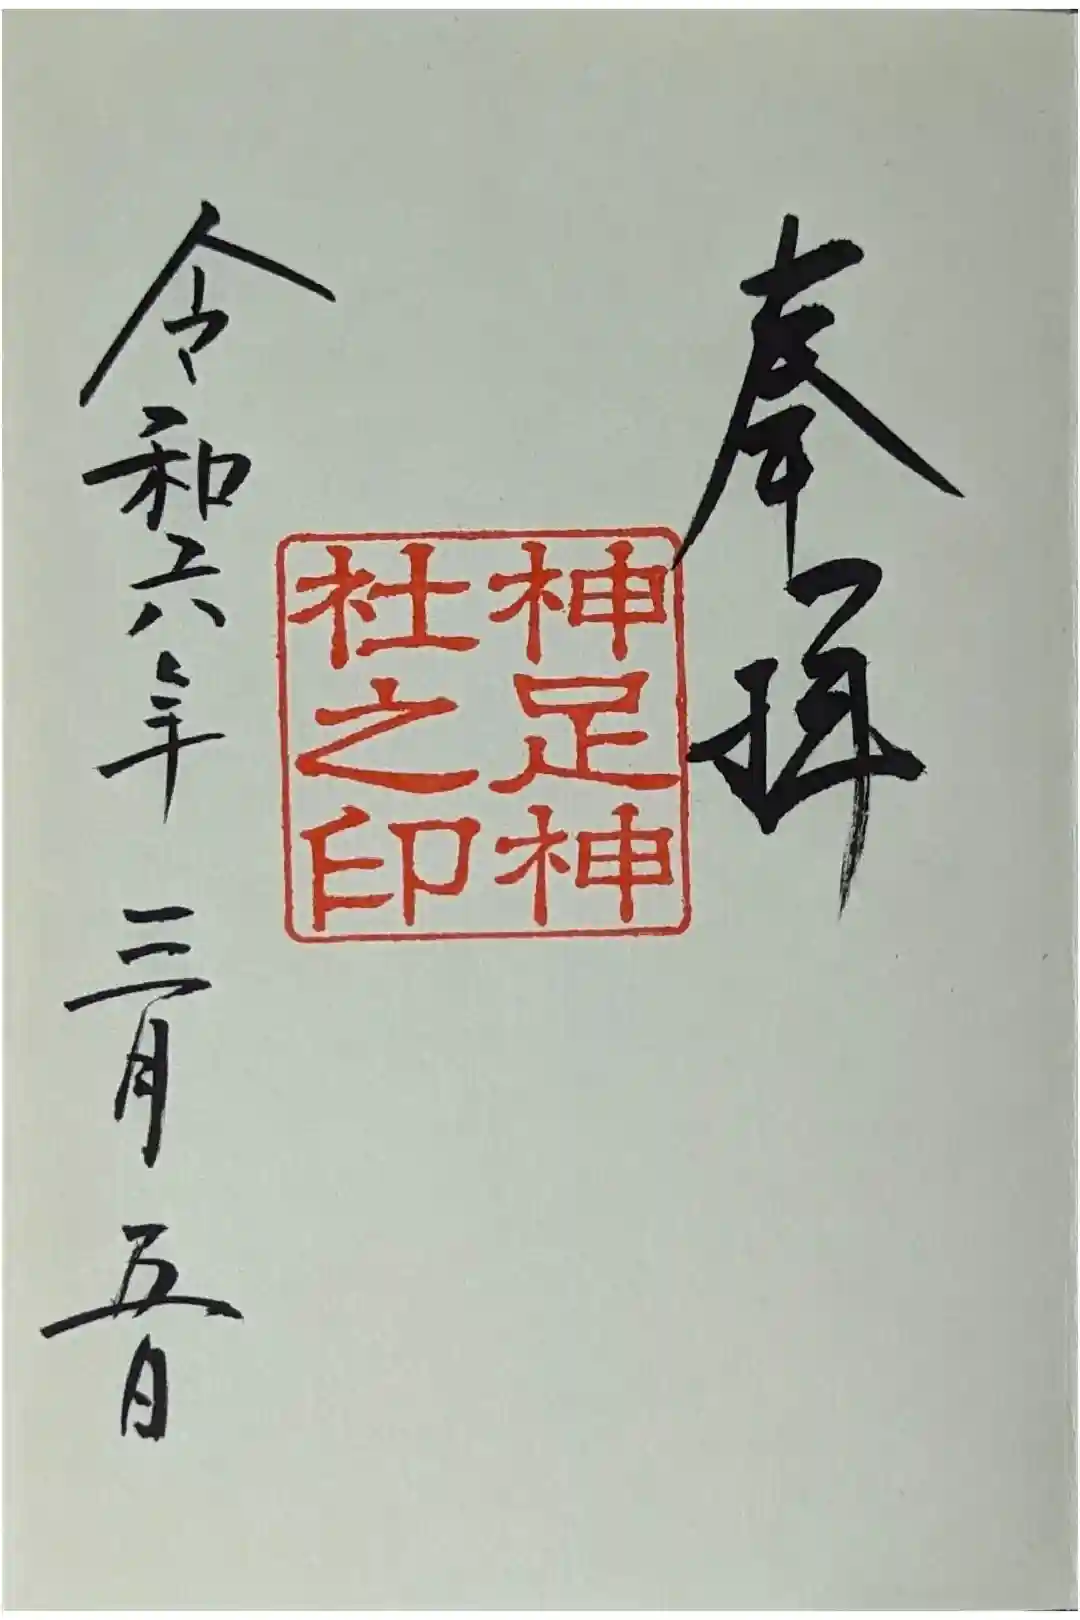 奉拝
神足神
社之印
令和六年三月五日